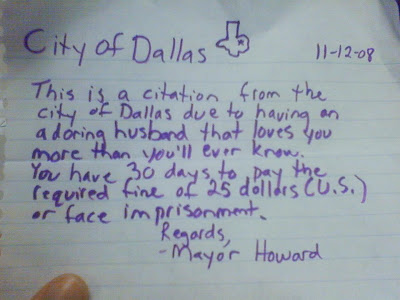 City of Dallas
11-12-08
This is a citation from the
city of Dallas due to having an
adoring husband that loves you
more than you'll ever know.
You have 30 days to pay the
required fine of 25 dollars (U.S.)
or face imprisonment.
Regards,
-Mayor Howard